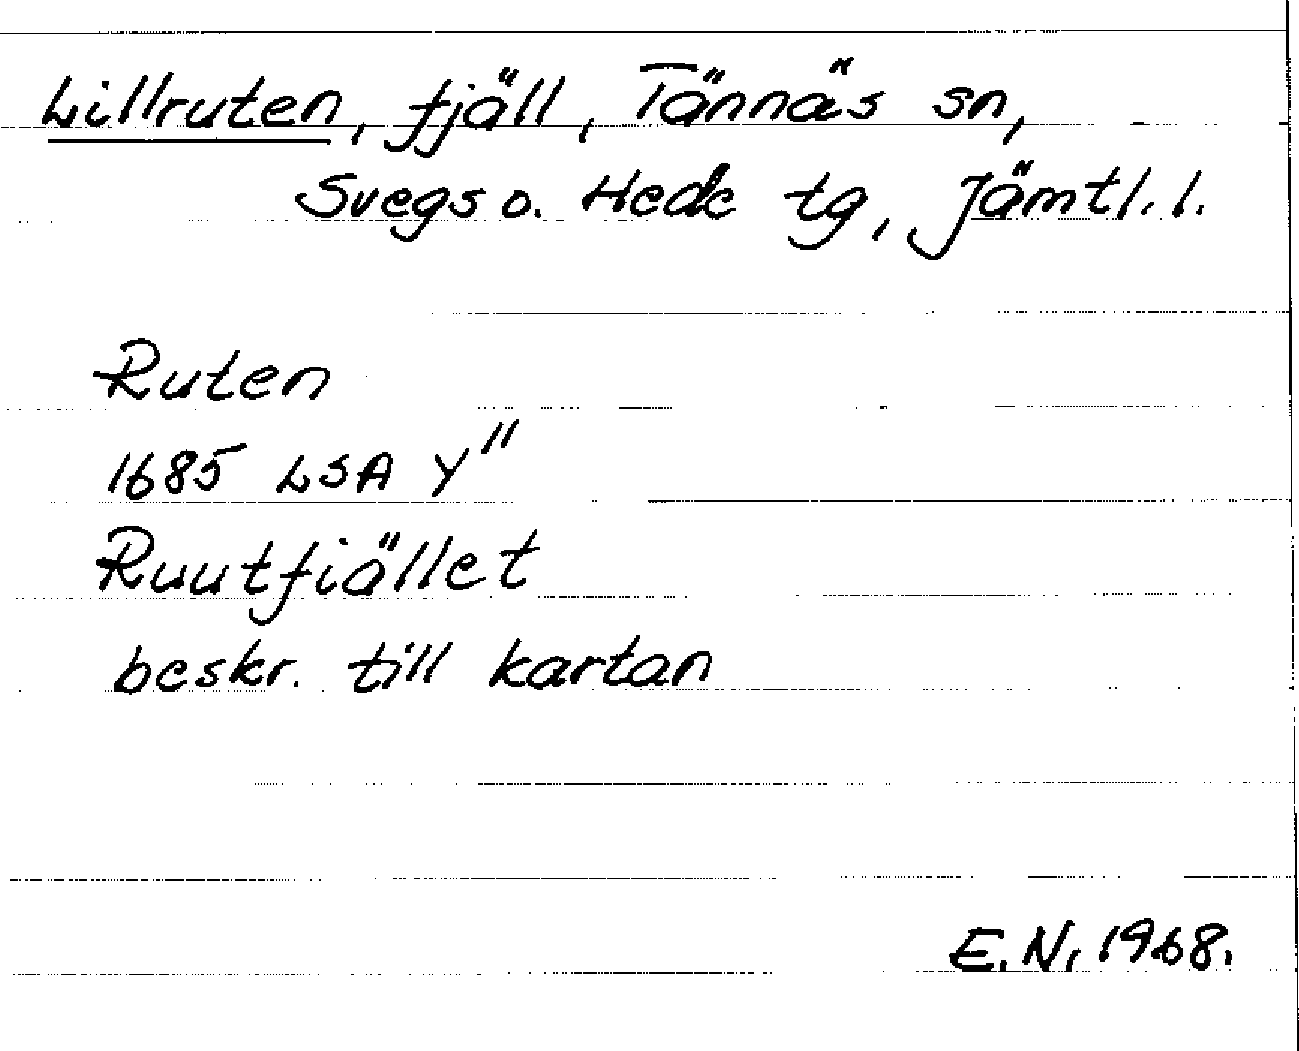 Lillruten, fjäll, Tännäs sn,
Svegs o. Hede tg, Jämtl. l.
Ruten
1685 LSA Y"
Ruutfiället
beskr. till kartan
E.N. 1968.